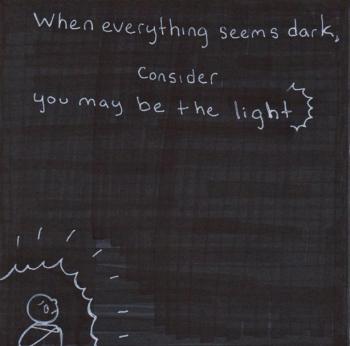 When everything seems dark,
Consider
you may be the light